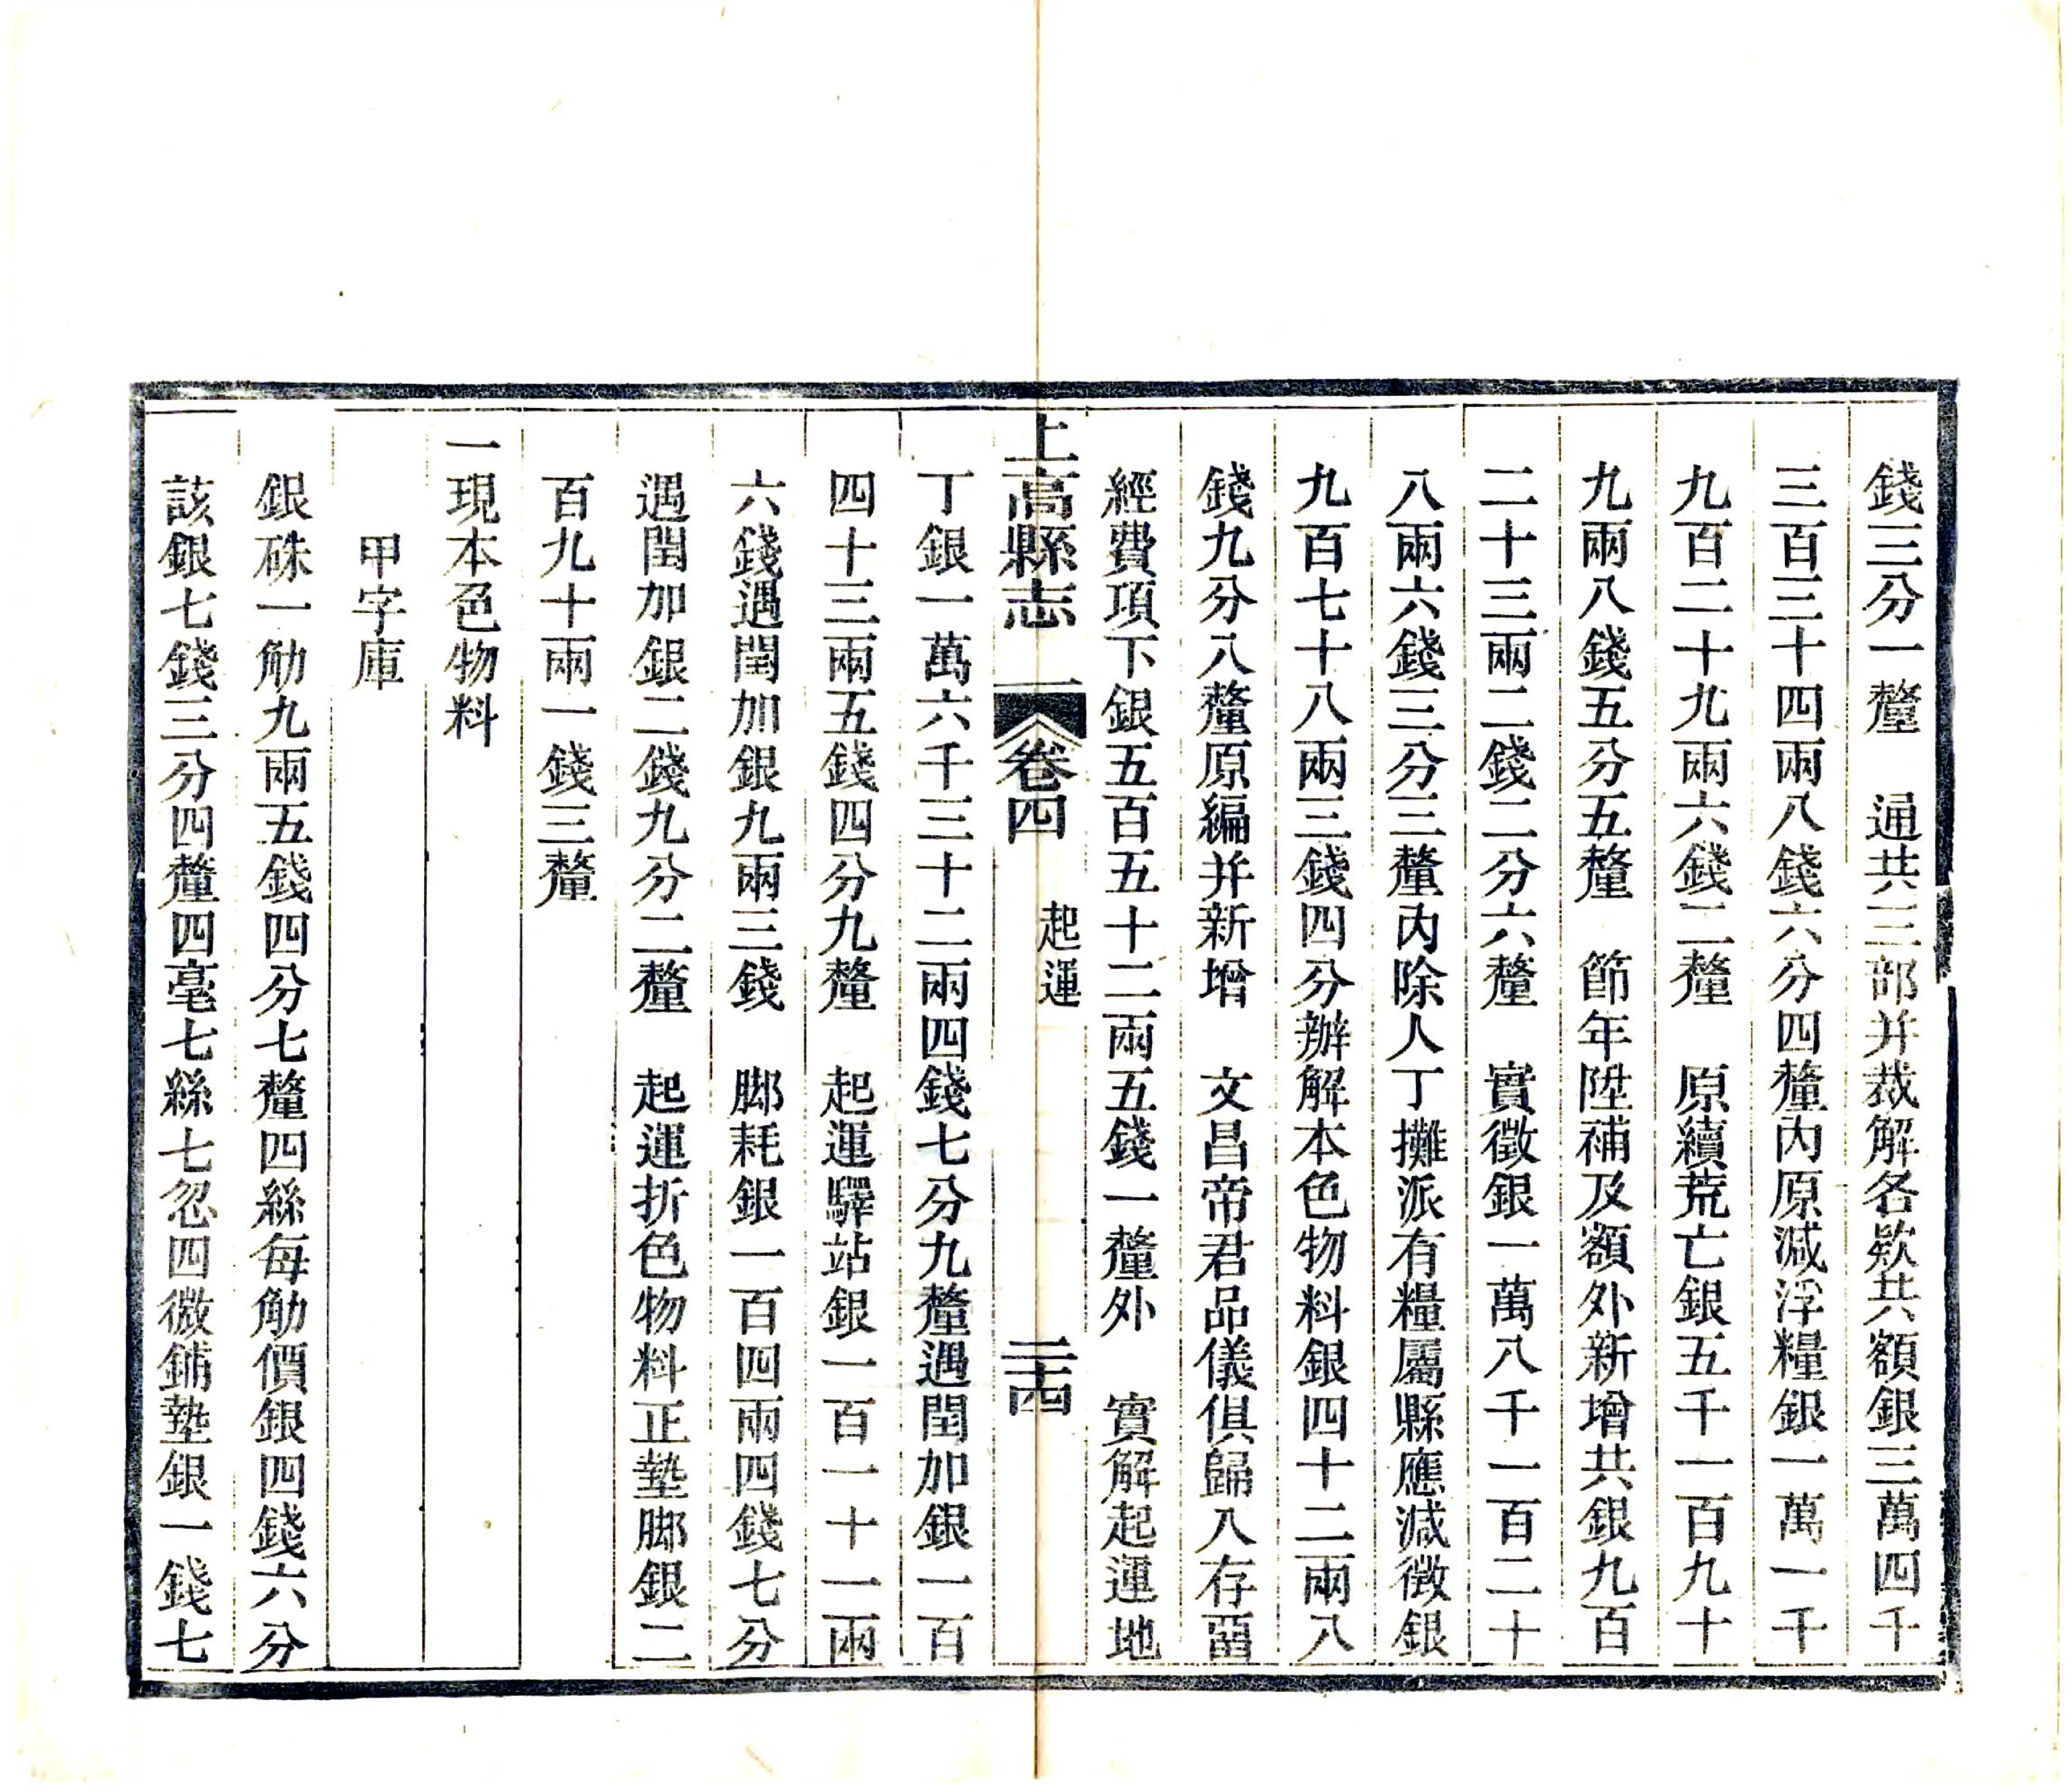 錢三分一釐　通共三部并裁解各欵共額銀三萬四千
三百三十四兩八錢六分四釐內原減浮糧銀一萬一千
九百二十九兩六錢二釐　原續荒亡銀五千一百九十
九兩八錢五分五釐　節年陞補及額外新增共銀九百
二十三兩二錢二分六釐　實徵銀一萬八千一百二十
八兩六錢三分三釐內除人丁攤派有糧屬縣應減徵銀
九百七十八兩三錢四分辦解本色物料銀四十二兩八
錢九分八釐原編并新增　文昌帝君品儀俱歸入存畱
經費項下銀五百五十二兩五錢一釐外　實解起運地
上高縣志　卷四　起運　二十四
丁銀一萬六千三十二兩四錢七分九釐遇閏加銀一百
四十三兩五錢四分九釐　起運驛站銀一百一十一兩
六錢遇閏加銀九兩三錢　脚耗銀一百四兩四錢七分
遇閏加銀二錢九分二釐　起運折色物料正墊脚銀二
百九十兩一錢三釐
一現本色物料
甲字庫
銀硃一觔九兩五錢四分七釐四絲每觔價銀四錢六分
該銀七錢三分四釐四毫七絲七忽四微鋪墊銀一錢七